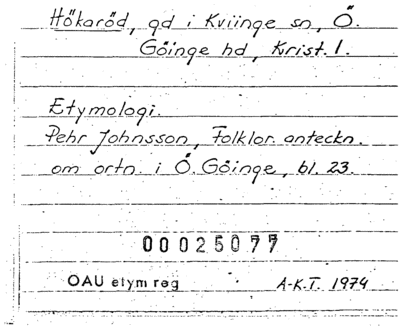 Hökaröd, gd i Kviinge sn, Ö.
Göinge hd, Krist. l.
Etymologi.
Pehr Johnsson, Folklor. anteckn.
om ortn. i Ö. Göinge, bl. 23.
00025077
OAU etym reg A-K.T. 1974